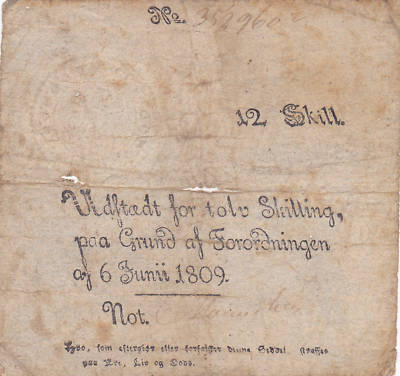 No. 352960
12 Skill.
Udstædt for tolv Skilling,
paa Grund af Forordningen
af 6 Junii 1809.
Not.
Hvo, som eftergiør eller forfalsker denne Seddel, straffes
paa Ære, Liv og Gods.